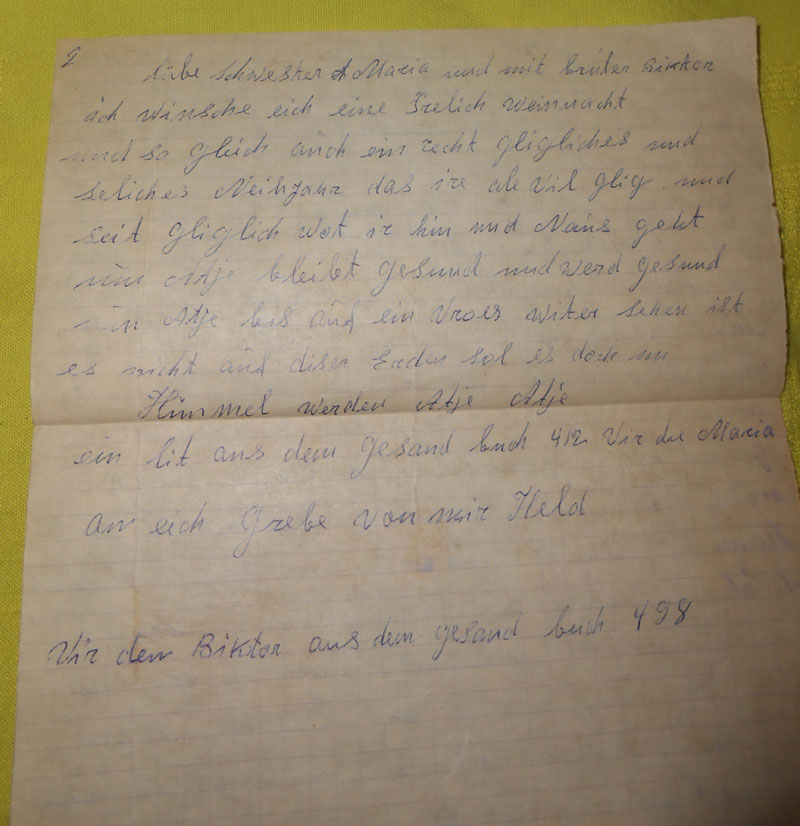 2
libe Schwester A Maria und mit brüter Biktor
ich winsche eich eine Frelich Weinnacht
und so gleich auch ein recht gligliches und
seliches Neihjahr das ire ale vil glig und
seit gliglich wot ir hin und Naus geht
nün Atje bleibt gesund und werd gesund
nün Atje bis auf ein Vroes witer sehen ist
es nicht auf diser Erden sol es doch im
Himmel werden Atje Atje
ein lit aus dem gesand buch 412 Vir die Maria
an eich Grebe von mir Held
Vir dem Biktor aus dem gesand buch 498